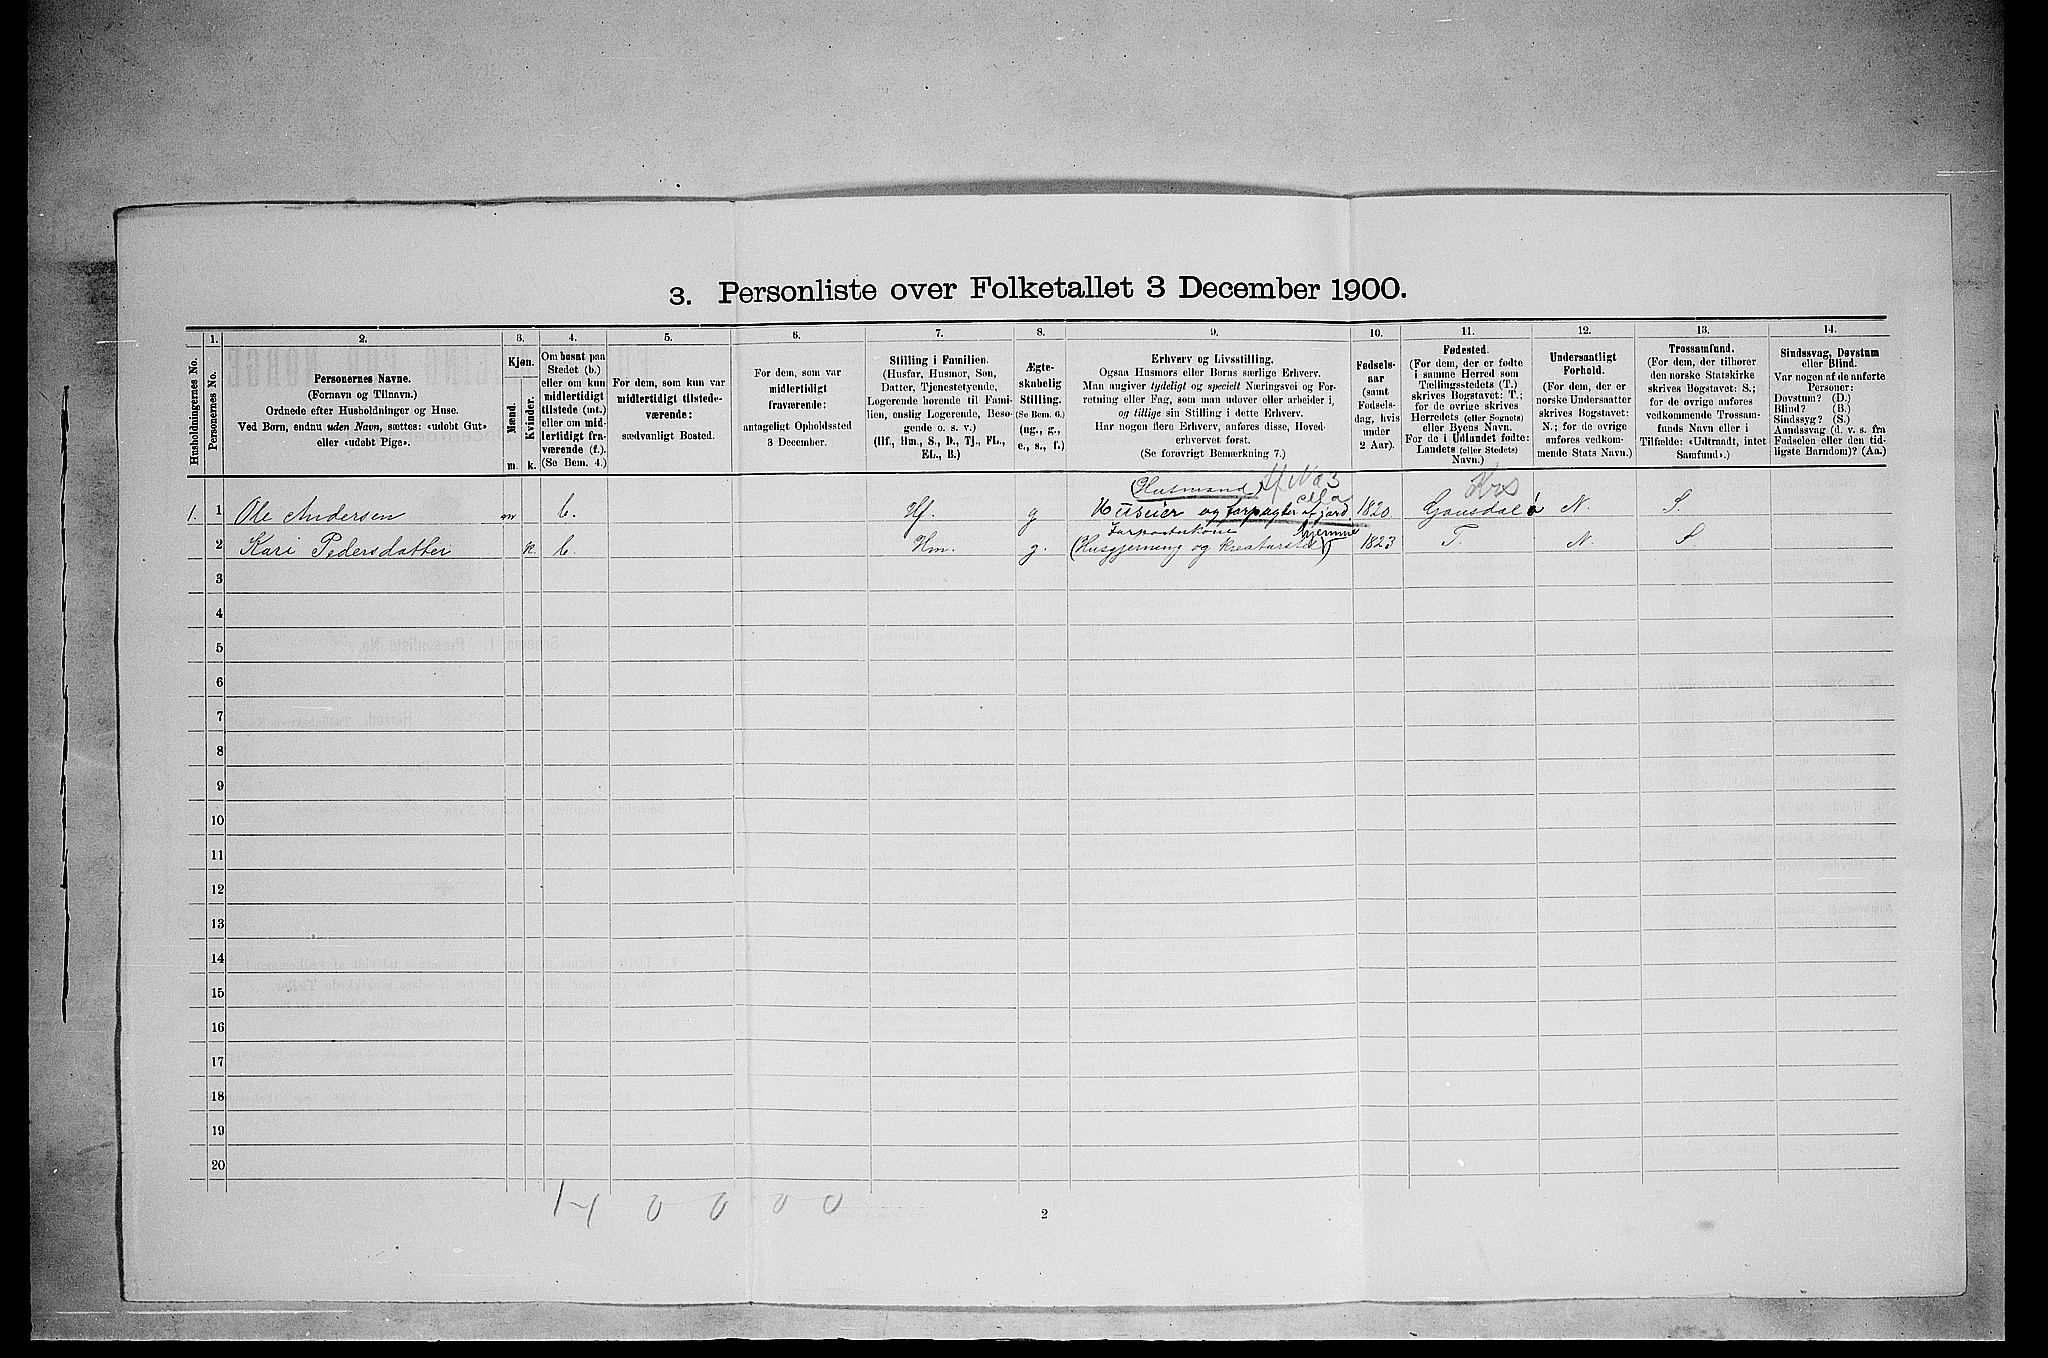 3. Personliste over Folketallet 3 December 1900.
1. 2. 3. 4. 5. 6. 7. 8. 9. 10. 11. 12. 13. 14.
Husholdningernes No.
Personernes No.
Personernes Navne.
(Fornavn og Tilnavn.)
Ordnede efter Husholdninger og Huse.
Ved Børn, endnu uden Navn, sættes: «udøbt Gut»
eller «udøbt Pige».
Kjøn.
Mænd.
Kvinder.
m. k.
Om bosat paa
Stedet (b.)
eller om kun
midlertidigt
tilstede (mt.)
eller om mid-
lertidigt fra-
værende (f.).
(Se Bem. 4.)
For dem, som kun var
midlertidigt tilstede-
værende:
sædvanligt Bosted.
For dem, som var
midlertidigt
fraværende:
antageligt Opholdssted
3 December.
Stilling i Familien.
(Husfar, Husmor, Søn,
Datter, Tjenestetyende,
Logerende hørende til Fami-
lien, enslig Logerende, Besø-
gende o. s. v.)
(Hf., Hm., S., D., Tj., FL.,
EL., B.)
Ægte-
skabelig
Stilling.
(Se Bem. 6.)
(ug., g.,
e., s., f.)
Erhverv og Livsstilling.
Ogsaa Husmors eller Børns særlige Erhverv.
Man angiver tydeligt og specielt Næringsvei og For-
retning eller Fag, som man udover eller arbeider i,
og tillige sin Stilling i dette Erhverv.
Har nogen flere Erhverv, anføres disse, Hoved-
erhvervet først.
(Se forøvrigt Bemærkning 7.)
Fødsels-
aar
(samt
Fødsels-
dag, hvis
under
2 Aar).
Fødested.
(For dem, der er fødte
i samme Herred som
Tællingsstedets (T.)
skrives Bogstavet: T.;
for de øvrige skrives
Herredets (eller Sognets)
eller Byens Navn.
For de i Udlandet fødte:
Landets (eller Stedets)
Navn.)
Undersaatligt
Forhold.
(For dem, der er
norske Undersaatter
skrives Bogstavet:
N.; for de øvrige
anføres vedkom-
mende Stats Navn.)
Trossamfund.
(For dem, der tilhører
den norske Statskirke
skrives Bogstavet: S.;
for de øvrige anføres
vedkommende Trossam-
funds Navn eller i
Tilfælde: «Udtraadt, intet
Samfund».)
Sindssvag, Døvstum
eller Blind.
Var nogen af de anførte
Personer:
Døvstum? (D.)
Blind? (B.)
Sindssyg? (S.)
Aandssvag (d. v. s. fra
Fødselen eller den tid-
ligste Barndom)? (Aa.)
(Husmand)
1. 1 Ole Andersen m b. Hf. g Huseier og forpagter af jord 1820 Gausdal N. S.
Forpagterkone
2 Kari Pedersdatter k. b. Hm. g. (Husgjerning og kreaturstel) 1823 T. N. S.
3
4
5
6
7
8
9
10
11
12
13
14
15
16
17
18
19
20
0 0 0 0
2